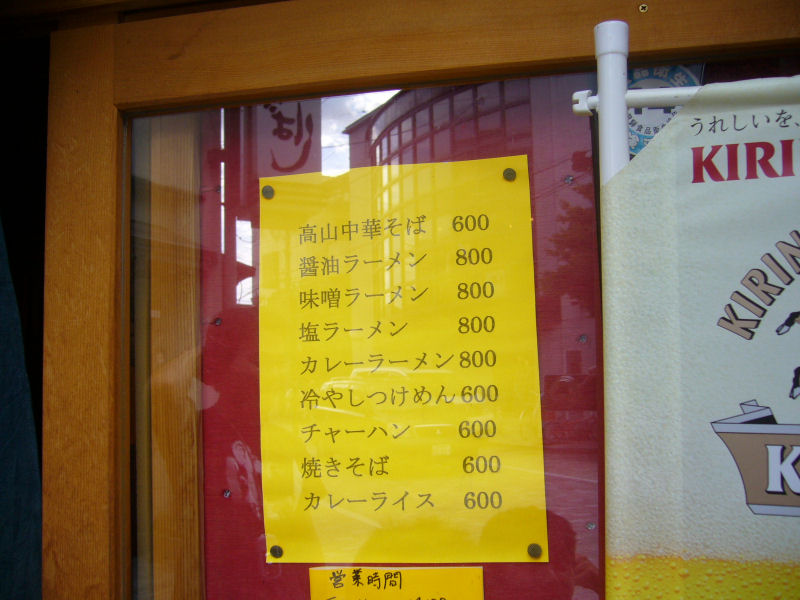 高山中華そば 600
醤油ラーメン 800
味噌ラーメン 800
塩ラーメン 800
カレーラーメン 800
冷やしつけめん 600
チャーハン 600
焼きそば 600
カレーライス 600
営業時間
うれしいを、
KIRI
KIRIN
K